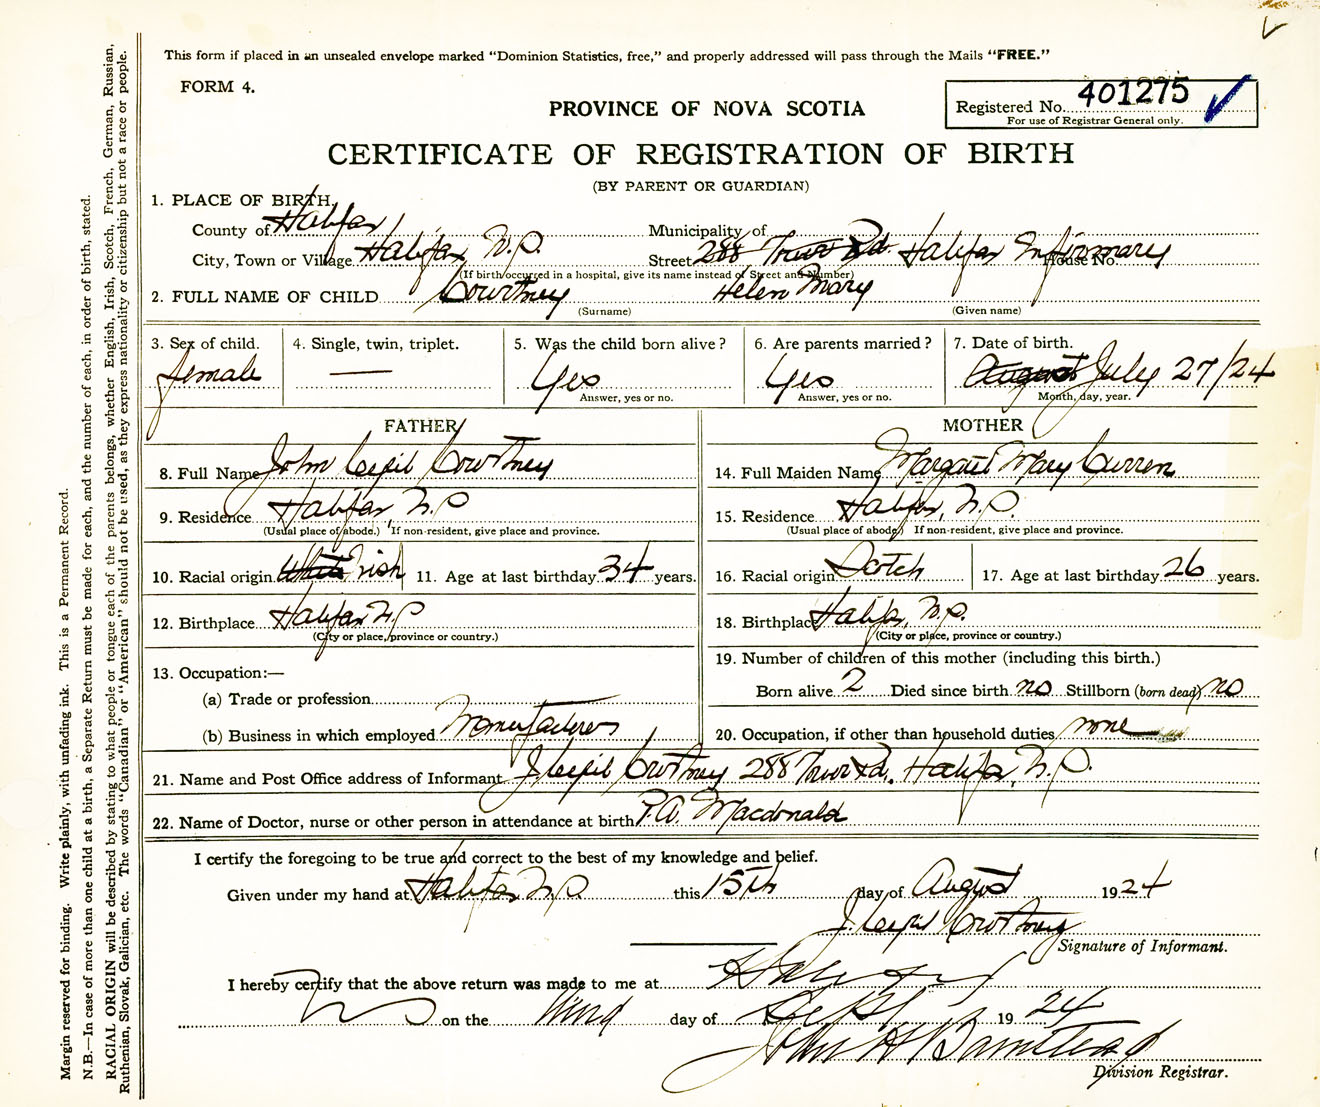 This form if placed in an unsealed envelope marked "Dominion Statistics, free," and properly addressed will pass through the Mails "FREE."
FORM 4.
PROVINCE OF NOVA SCOTIA
Registered No. 401275
For use of Registrar General only.
CERTIFICATE OF REGISTRATION OF BIRTH
(BY PARENT OR GUARDIAN)
1. PLACE OF BIRTH.
County of Halifax Municipality of
City, Town or Village Halifax, N.S. Street 288 Tower Rd. Halifax Infirmary House No.
(If birth occurred in a hospital, give its name instead of Street and Number)
2. FULL NAME OF CHILD Courtney Helen Mary
(Surname) (Given name)
3. Sex of child. 4. Single, twin, triplet. 5. Was the child born alive? 6. Are parents married? 7. Date of birth.
female — Yes Yes August July 27/24
Answer, yes or no. Answer, yes or no. Month, day, year.
FATHER MOTHER
8. Full Name John Cecil Courtney 14. Full Maiden Name Margaret Mary Curren
9. Residence Halifax N.S 15. Residence Halifax, N.S.
(Usual place of abode.) If non-resident, give place and province. (Usual place of abode) If non-resident, give place and province.
10. Racial origin White Irish 11. Age at last birthday 34 years. 16. Racial origin Scotch 17. Age at last birthday 26 years.
12. Birthplace Halifax N.S 18. Birthplace Halifax, N.S.
(City or place, province or country.) (City or place, province or country.)
13. Occupation:— 19. Number of children of this mother (including this birth.)
(a) Trade or profession Born alive 2 Died since birth no Stillborn (born dead) no
(b) Business in which employed Manufacturer 20. Occupation, if other than household duties none
21. Name and Post Office address of Informant J. Cecil Courtney 288 Tower Rd. Halifax, N.S.
22. Name of Doctor, nurse or other person in attendance at birth P.A. Macdonald
I certify the foregoing to be true and correct to the best of my knowledge and belief.
Given under my hand at Halifax N.S. this 15th day of August 1924
J. Cecil Courtney
Signature of Informant.
I hereby certify that the above return was made to me at Halifax
on the day of Sept 1924
John H Barnstead
Division Registrar.
Margin reserved for binding. Write plainly, with unfading ink. This is a Permanent Record.
N.B.—In case of more than one child at a birth, a Separate Return must be made for each, and the number of each, in order of birth, stated.
RACIAL ORIGIN will be described by stating to what people or tongue each of the parents belongs, whether English, Irish, Scotch, French, German, Russian,
Ruthenian, Slovak, Galician, etc. The words "Canadian" or "American" should not be used, as they express nationality or citizenship but not a race or people.